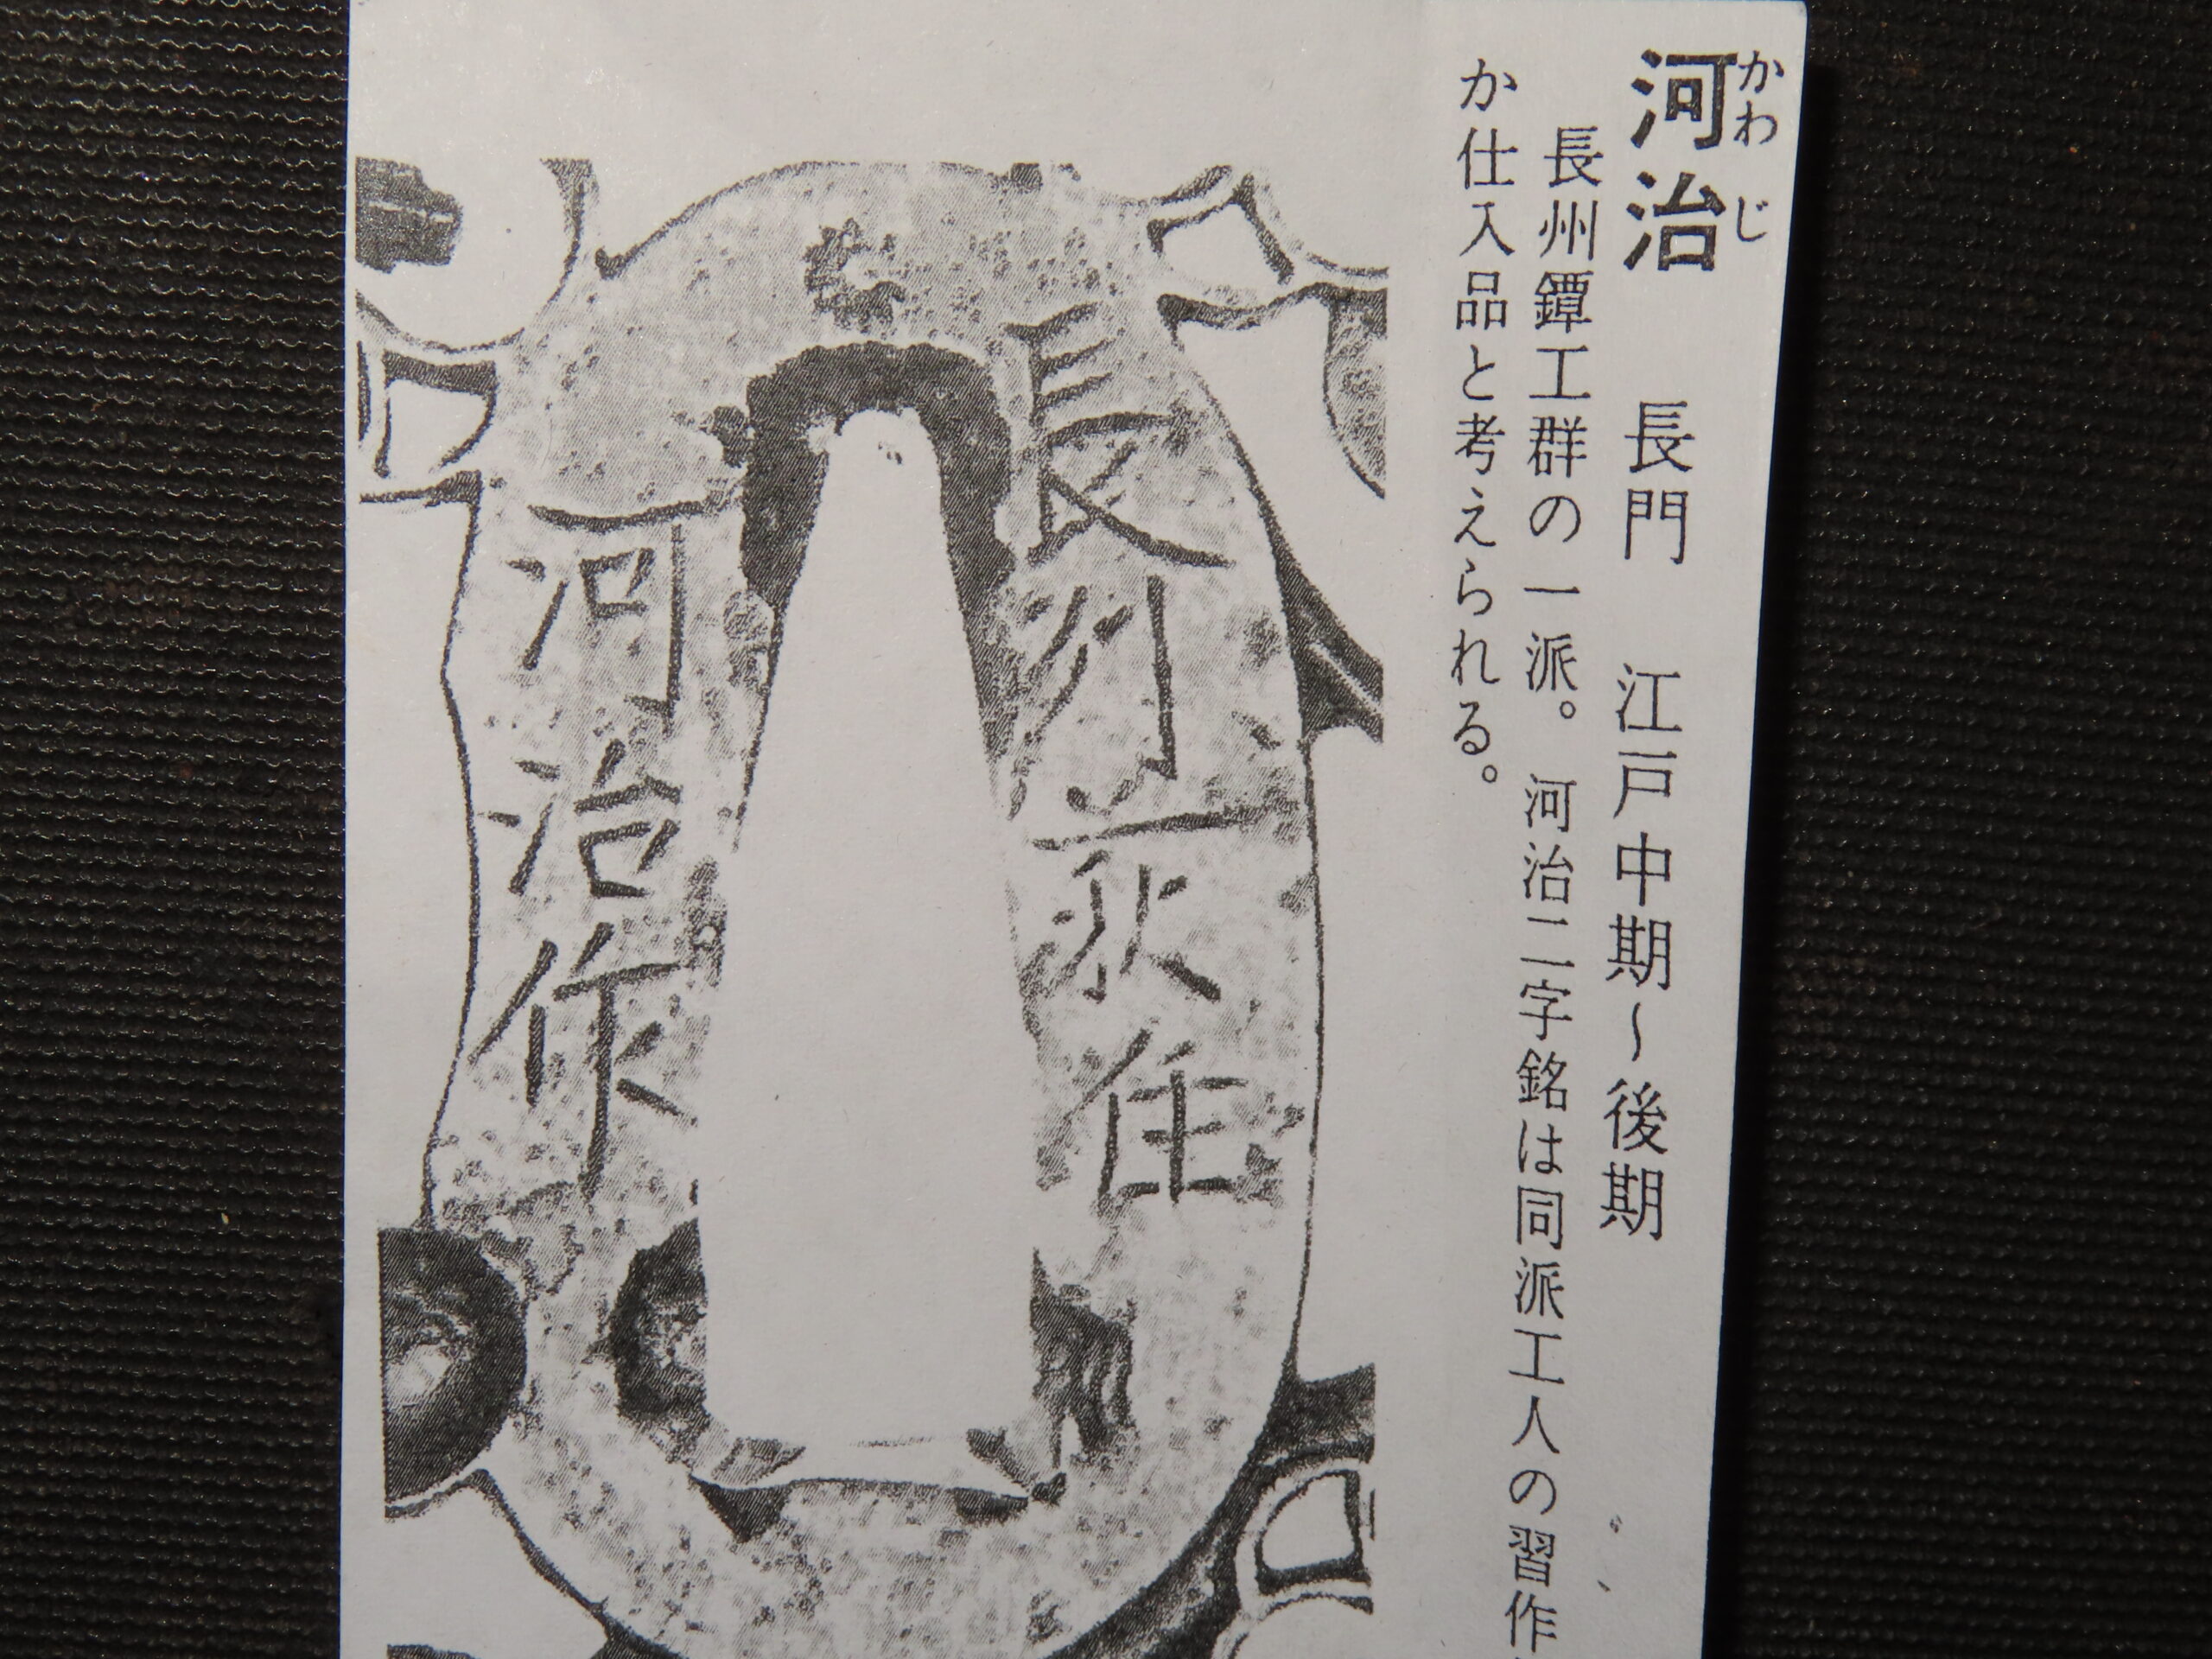 かわじ
河治　長門　江戸中期～後期
長州鐔工群の一派。河治二字銘は同派工人の習作
か仕入品と考えられる。
長州萩住
河治作